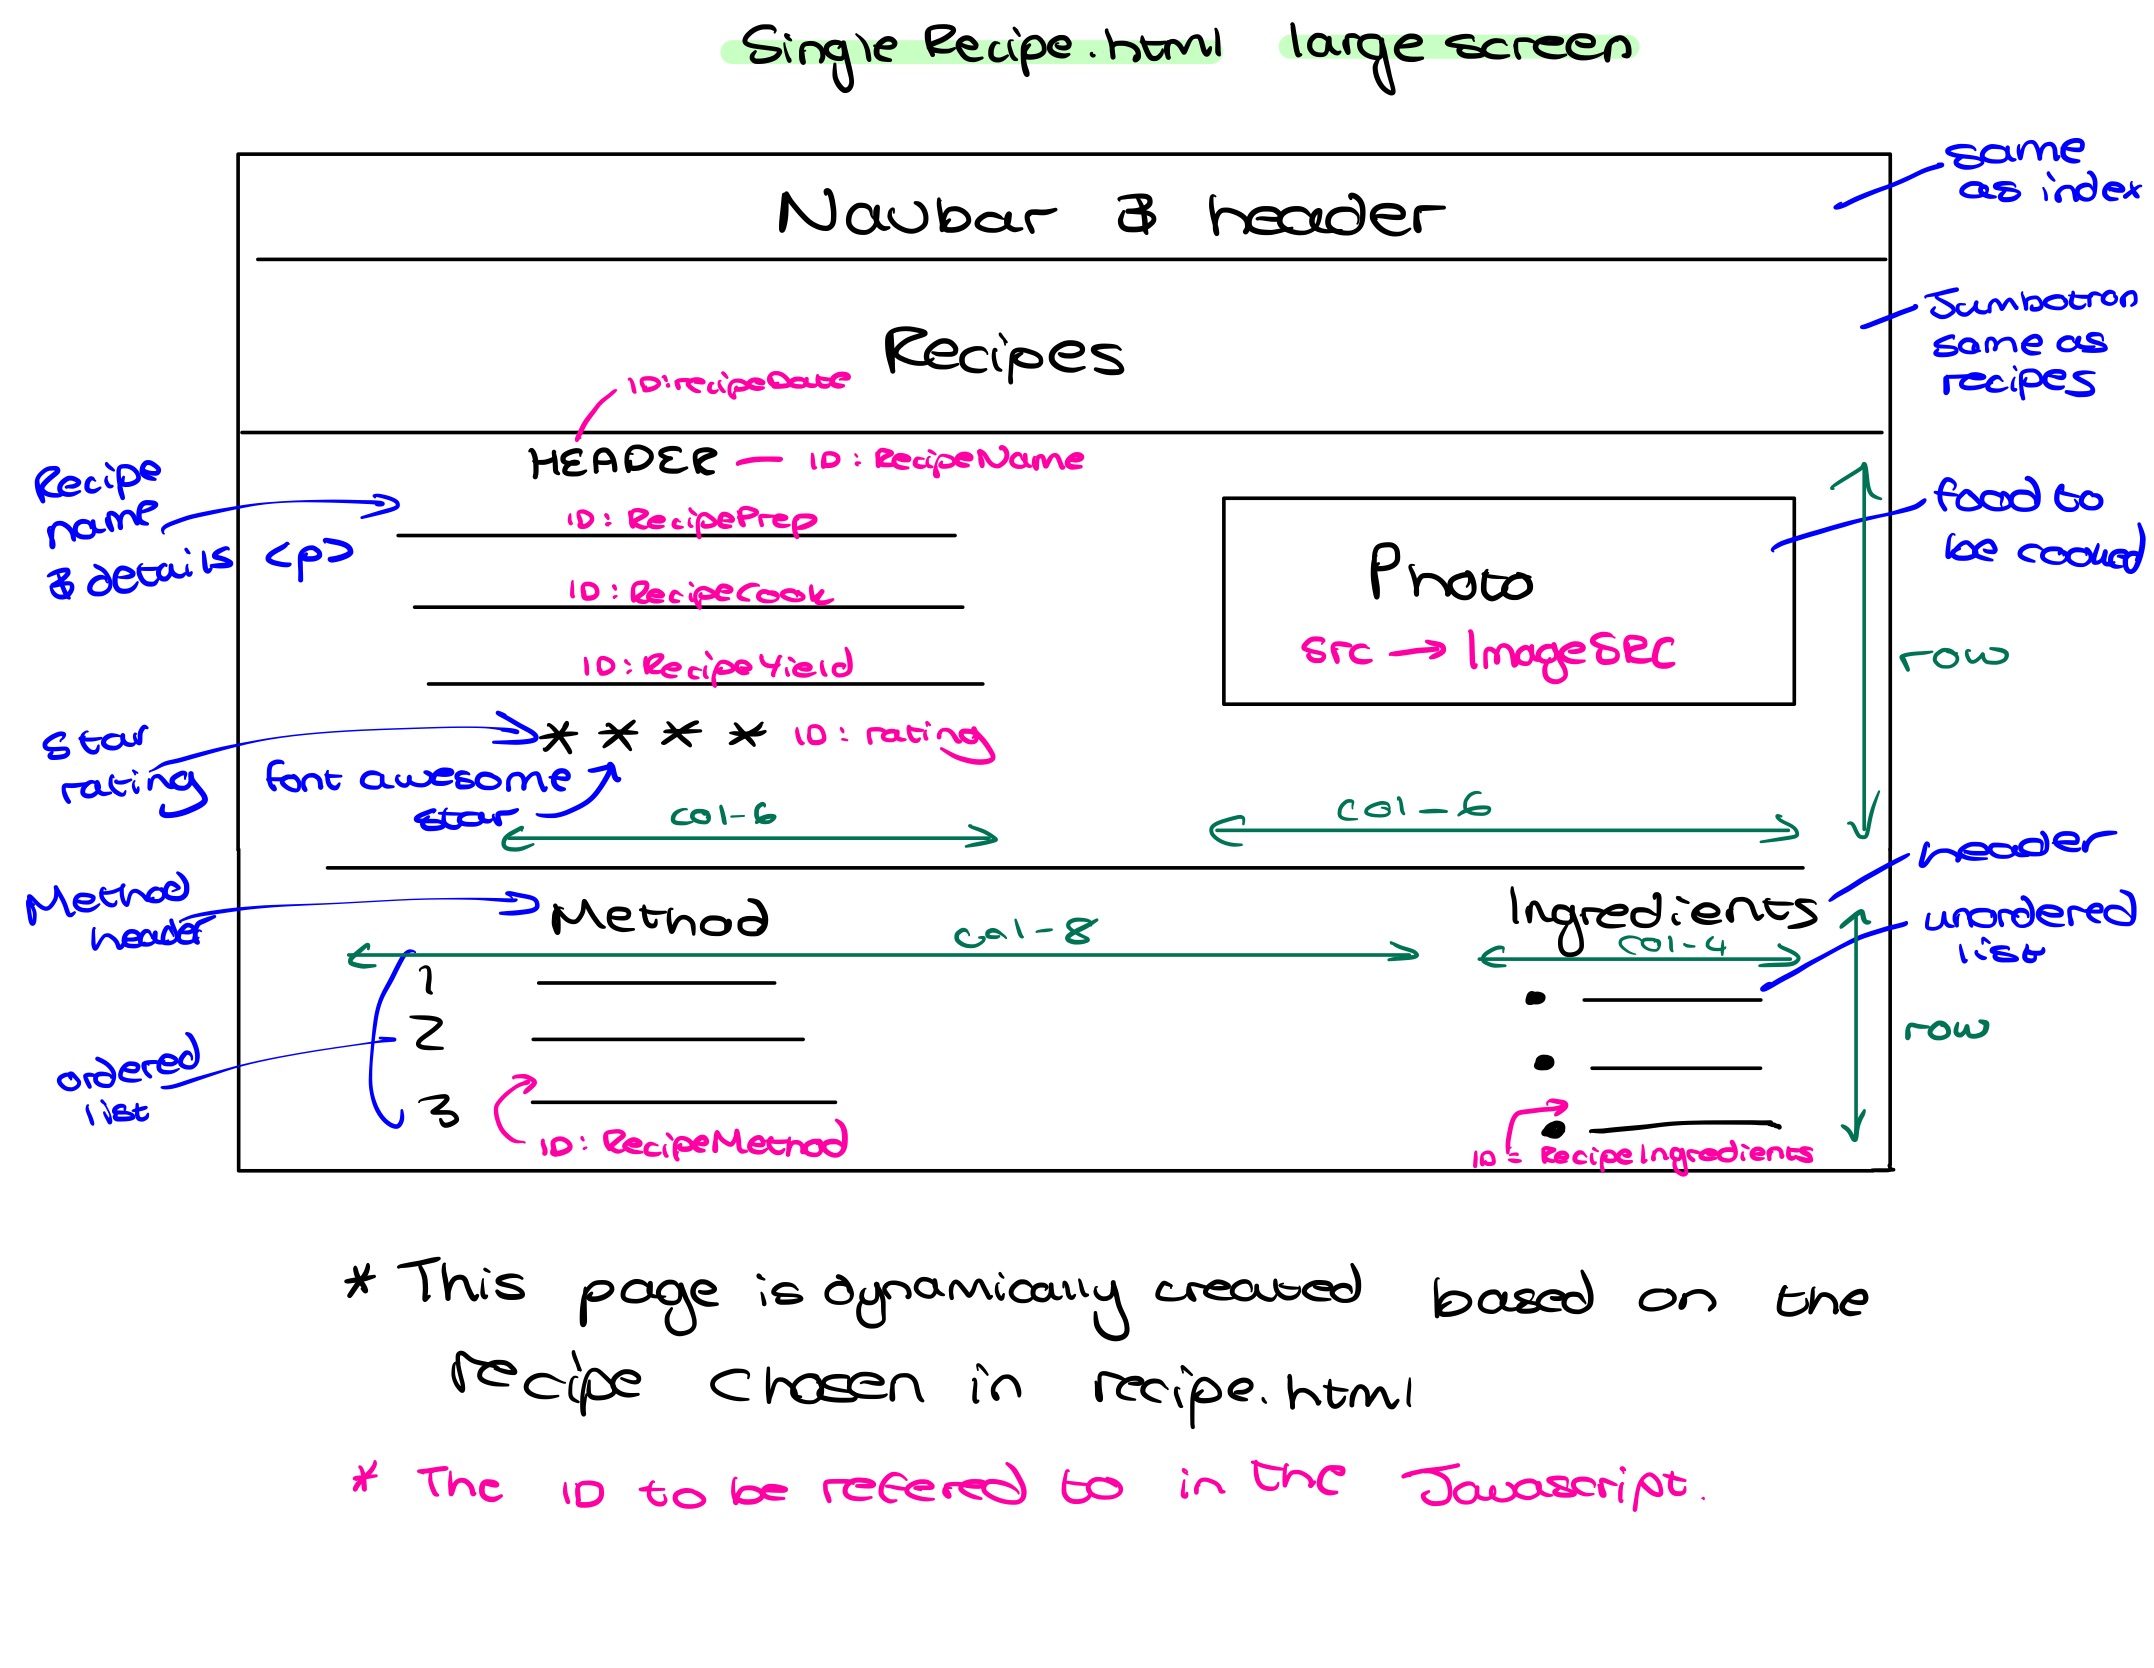 Single Recipe.html large screen
Navbar & header
same
as index
Recipes
Jumbotron
same as
recipes
ID:recipeDate
HEADER — ID: RecipeName
Recipe
name
& details <p>
ID: RecipePrep
ID: RecipeCook
ID: RecipeYield
Photo
src → ImageSRC
food to
be cooked
row
star
rating
* * * * ID: rating
font awesome
star
col-6
col-6
Method
header
Method
col-8
Ingredients
col-4
header
unordered
list
1
2
3
ordered
list
ID: RecipeMethod
ID = RecipeIngredients
row
* This page is dynamically created based on the
recipe chosen in recipe.html
* The ID to be refered to in the Javascript.